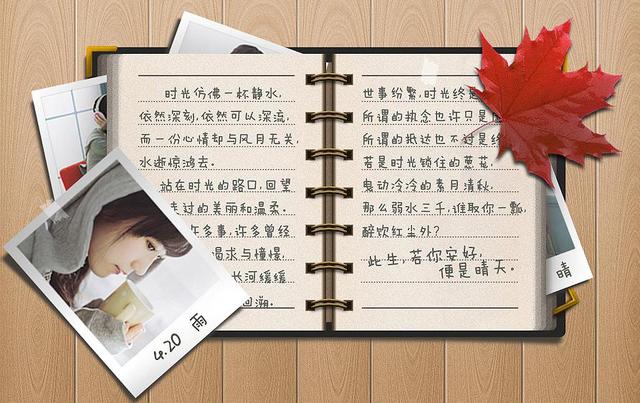 时光仿佛一杯静水,
依然深刻,依然可以深流,
而一份心情却与风月无关,
水逝惊鸿去.
站在时光的路口,回望
走过的美丽和温柔.
许多事,许多曾经
渴求与憧憬,
长河缓缓
回溯.
世事纷繁,时光终是
所谓的执念也许只是
所谓的抵达也不过是终
若是时光锁住的蕙花,
鬼动泠泠的素月清秋,
那么弱水三千,谁取你一瓢,
醉饮红尘外?
此生,若你安好,
便是晴天.
4.20 雨
晴